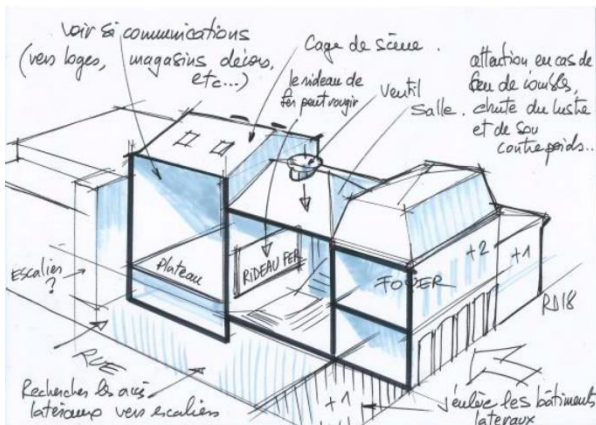 voir si communications
(vers loges, magasins décors,
etc...)
Cage de scène.
le rideau de
fer peut rougir
Ventil
Salle.
attention en cas de
feu de combles,
chute du lustre
et de son
contrepoids..
Escalier
?
Plateau
RIDEAU FER
FOYER
+2
+1
RD18
RUE
Rechercher les accès
latéraux vers escaliers
+1
j'enlève les bâtiments
lateraux